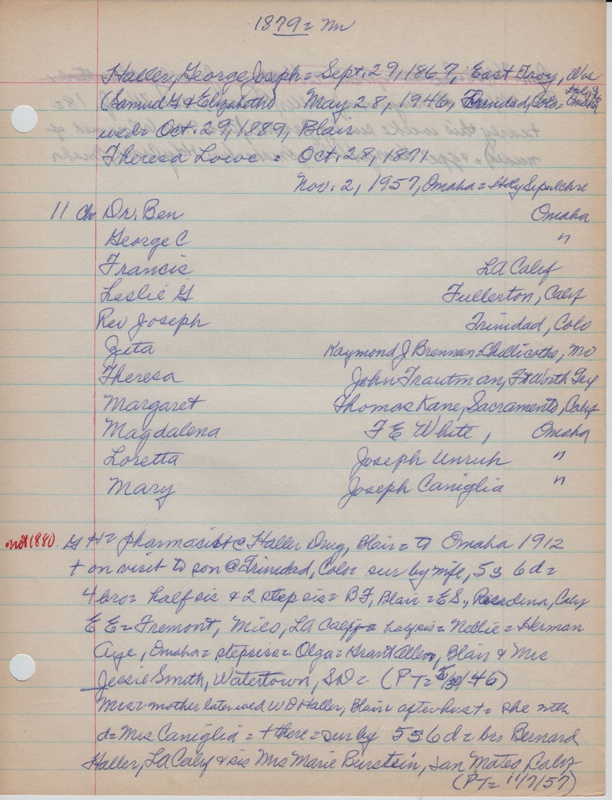 1879 = Nr
Haller, George Joseph = Sept. 29, 1867, East Troy, Wis
(Samuel G & Elizabeth) May 28, 1946, Trinidad, Colo, Omaha
wed = Oct. 29, 1889, Blair
Theresa Lowe = Oct. 28, 1871
Nov. 2, 1957, Omaha = Holy Sepulchre
11 ch Dr. Ben Omaha
George C "
Francis LA Calif
Leslie G Fullerton, Calif
Rev Joseph Trinidad, Colo
Zita Raymond J Brennan, Chillicothe, Mo
Theresa John Trautman, Ft Worth Tex
Margaret Thomas Kane, Sacramento, Calif
Magdalena F E White, Omaha
Loretta Joseph Unruh "
Mary Joseph Caniglia "
not 1880 G H = pharmacist @ Haller Drug, Blair = to Omaha 1912
+ on visit to son @ Trinidad, Colo = sur by wife, 5 s 6 d =
4 bro = half sis & 2 step sis = B F, Blair = E S., Pasadena, Calif
E E = Fremont, Milo, LA Calif = half sis = Nellie = Herman
Aye, Omaha = stepsis = Olga = Grant Allen, Blair & Mrs
Jessie Smith, Watertown, SD = (PT = 5/30/46)
Mrs = mother later wed W D Haller, Blair after hus + = she with
d = Mrs Caniglia = + there = sur by 5 s 6 d = bro Bernard
Haller, LA Calif & sis Mrs Marie Burstein, San Mateo, Calif
(PT = 11/7/57)